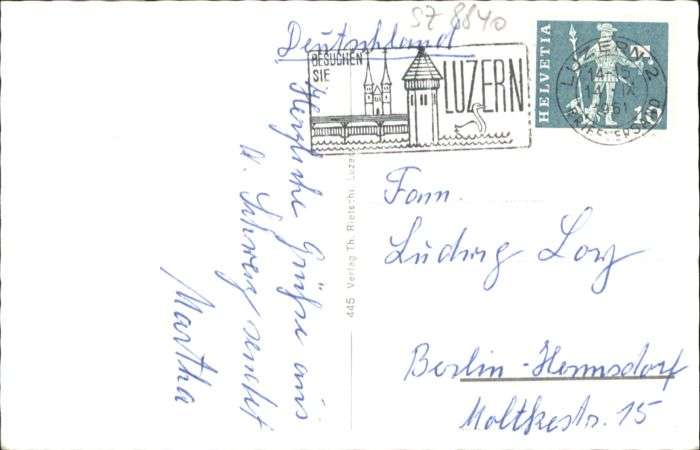 SZ 8840
Deutschland
BESUCHEN
SIE
LUZERN
HELVETIA
LUZERN 2
14-15
14. IX.
1961
BRIEFVERSAND
Herzliche Grüße aus
d. Schweiz sendet
Martha
445 Verlag Th. Rietschi, Luzern
Fam.
Ludwig Loy
Berlin-Hermsdorf
Moltkestr. 15